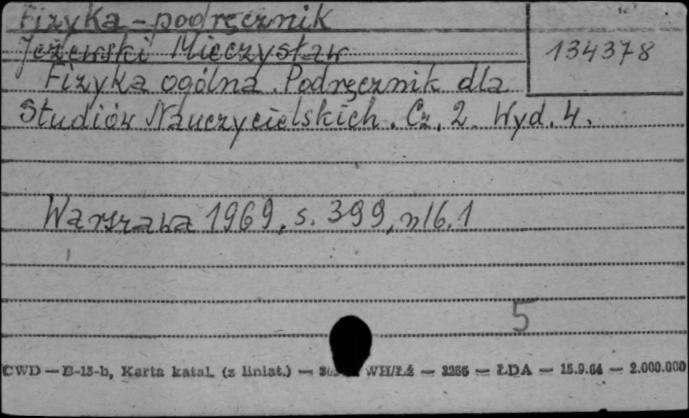 Fizyka - podręcznik
Jeżewski Mieczysław
134378
Fizyka ogólna. Podręcznik dla
Studiów Nauczycielskich. Cz. 2. Wyd. 4.
Warszawa 1969, s. 399, nlb. 1
5
CWD — B-13-b, Karta katal. (z liniat.) — WH/Łź — 3235 — ŁDA — 15.9.64 — 2.000.000